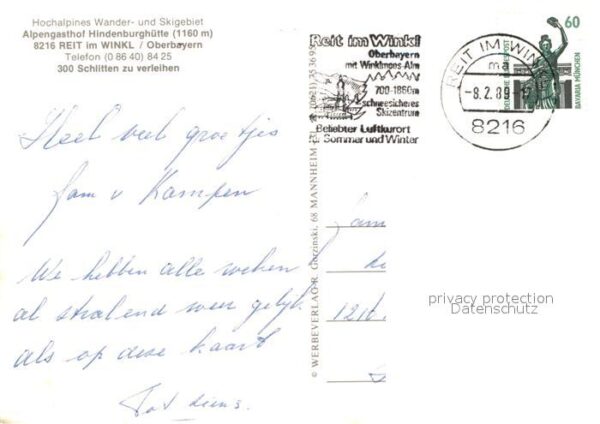 Hochalpines Wander- und Skigebiet
Alpengasthof Hindenburghütte (1160 m)
8216 REIT im WINKL / Oberbayern
Telefon (0 86 40) 84 25
300 Schlitten zu verleihen
Heel veel groetjes
fam v Kampen
We hebben alle weken
al stralend weer gelijk
als op deze kaart
Tot ziens.
© WERBEVERLAG R. Garzinski, 68 MANNHEIM
Reit im Winkl
Oberbayern
mit Winklmoos-Alm
700-1860m
schneesicheres
Skizentrum
Beliebter Luftkurort
Sommer und Winter
REIT IM WINKL
ma
-8.2.89
8216
60
DEUTSCHE BUNDESPOST
BAVARIA MÜNCHEN
fam
1216
privacy protection
Datenschutz